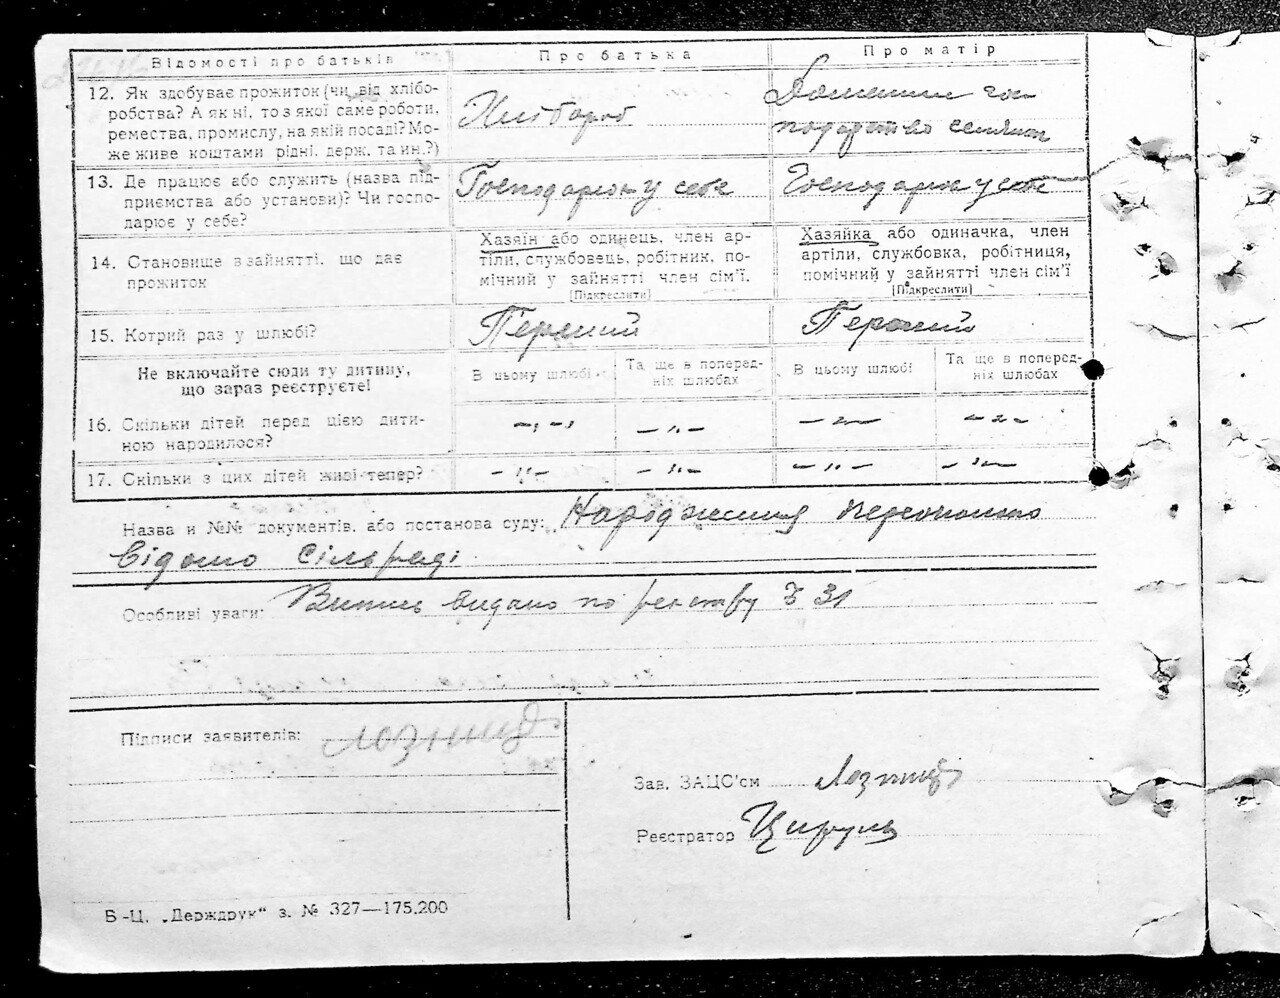 Відомості про батьків Про батька Про матір
12. Як здобуває прожиток (чи від хлібо-
робства? А як ні, то з якої саме роботи,
ремества, промислу, на якій посаді? Мо-
же живе коштами рідні, держ. та ин.?)
Хлібороб
Домашнє гос
подарство
13. Де працює або служить (назва під-
приємства або установи)? Чи госпо-
дарює у себе?
Господарює у себе
Господарює у себе
14. Становище в зайнятті, що дає
прожиток
Хазяїн або одинець, член ар-
тіли, службовець, робітник, по-
мічний у зайнятті член сім'ї.
[Підкреслити]
Хазяйка або одиначка, член
артіли, службовка, робітниця,
помічний у зайнятті член сім'ї
[Підкреслити]
15. Котрий раз у шлюбі?
Перший
Перший
Не включайте сюди ту дитину,
що зараз реєструєте!
В цьому шлюбі
Та ще в поперед-
ніх шлюбах
В цьому шлюбі
Та ще в поперед-
ніх шлюбах
16. Скільки дітей перед цією дити-
ною народилося?
– " – – " – – " – – " –
17. Скільки з цих дітей живі тепер?
– " – – " – – " – – " –
Назва и №№ документів, або постанова суду: Народження персонально
відомо сільраді
Особливі уваги: Випись видано по реєстру № 31
Підписи заявителів:
Зав. ЗАЦС'ом
Реєстратор
Б-Ц. „Держдрук“ з. № 327—175.200